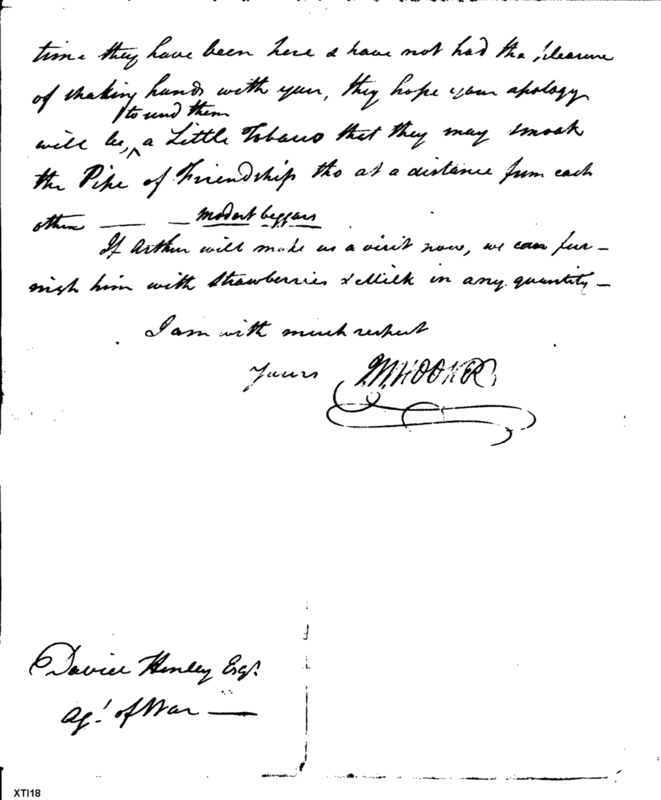 time they have been here & have not had the pleasure
of shaking hands with you, they hope your apology
to send them
will be, ^ a Little Tobacco that they may smoak
the Pipe of Friendship tho at a distance from each
other — — modest beggars
If Arthur will make us a visit now, we can fur–
nish him with strawberries & Milk in any quantity –
I am with much respect
Yours M HOOKER
David Henley Esqr.
Agt. of War —
XTI18